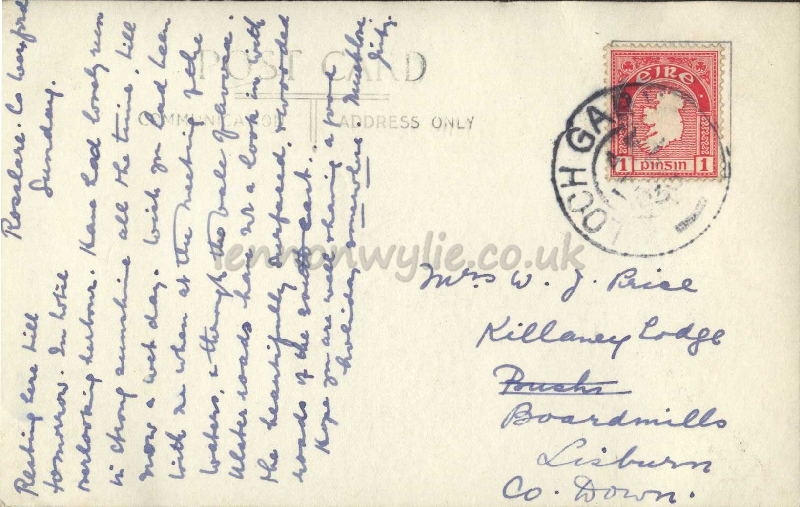 Rosslare. Co Wexford
Sunday.
Resting here till
tomorrow. In hotel
overlooking harbour. Have had lovely run
in strong sunshine all the time, till
now a wet day. Wish you had been
with us when at the meeting of the
waters, & through the vale of Avoca.
Ulster roads have not a look in with
the beautifully surfaced, & wooded
roads of the south east.
Hope you are well & having a good
holiday somewhere. Much love
POST CARD
COMMUNICATION
ADDRESS ONLY
EIRE
1 PINSIN 1
LOCH GAR
lennonwylie.co.uk
Mrs W. J. Price
Killaney Lodge
Boardmills
Lisburn
Co. Down.